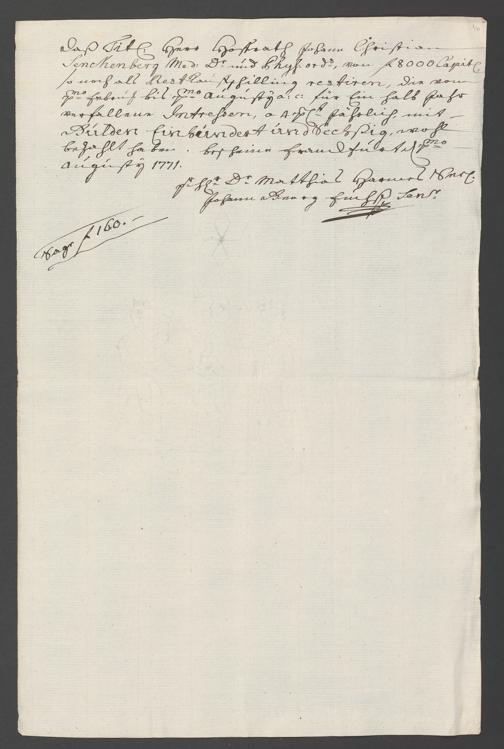 Daß Titl. Herr Hofrath Johann Christian
Senckenberg Med: Dr. und Phys: ord:, von f 8000 Capital
so noch als Rest Kauffschilling restiren, die vom
1mo Februj bis 1mo Augusty a: c: für Ein halb Jahr
verfallene Intressen, a 4 pCt jährlich mit
Gulden Einhundert und Sechszig, wohl
bezahlt haben. bescheine Franckfurt d. 1mo
Augusty 1771.
Dr. Matthias
Johann Georg Senr.
Sage f 160.-